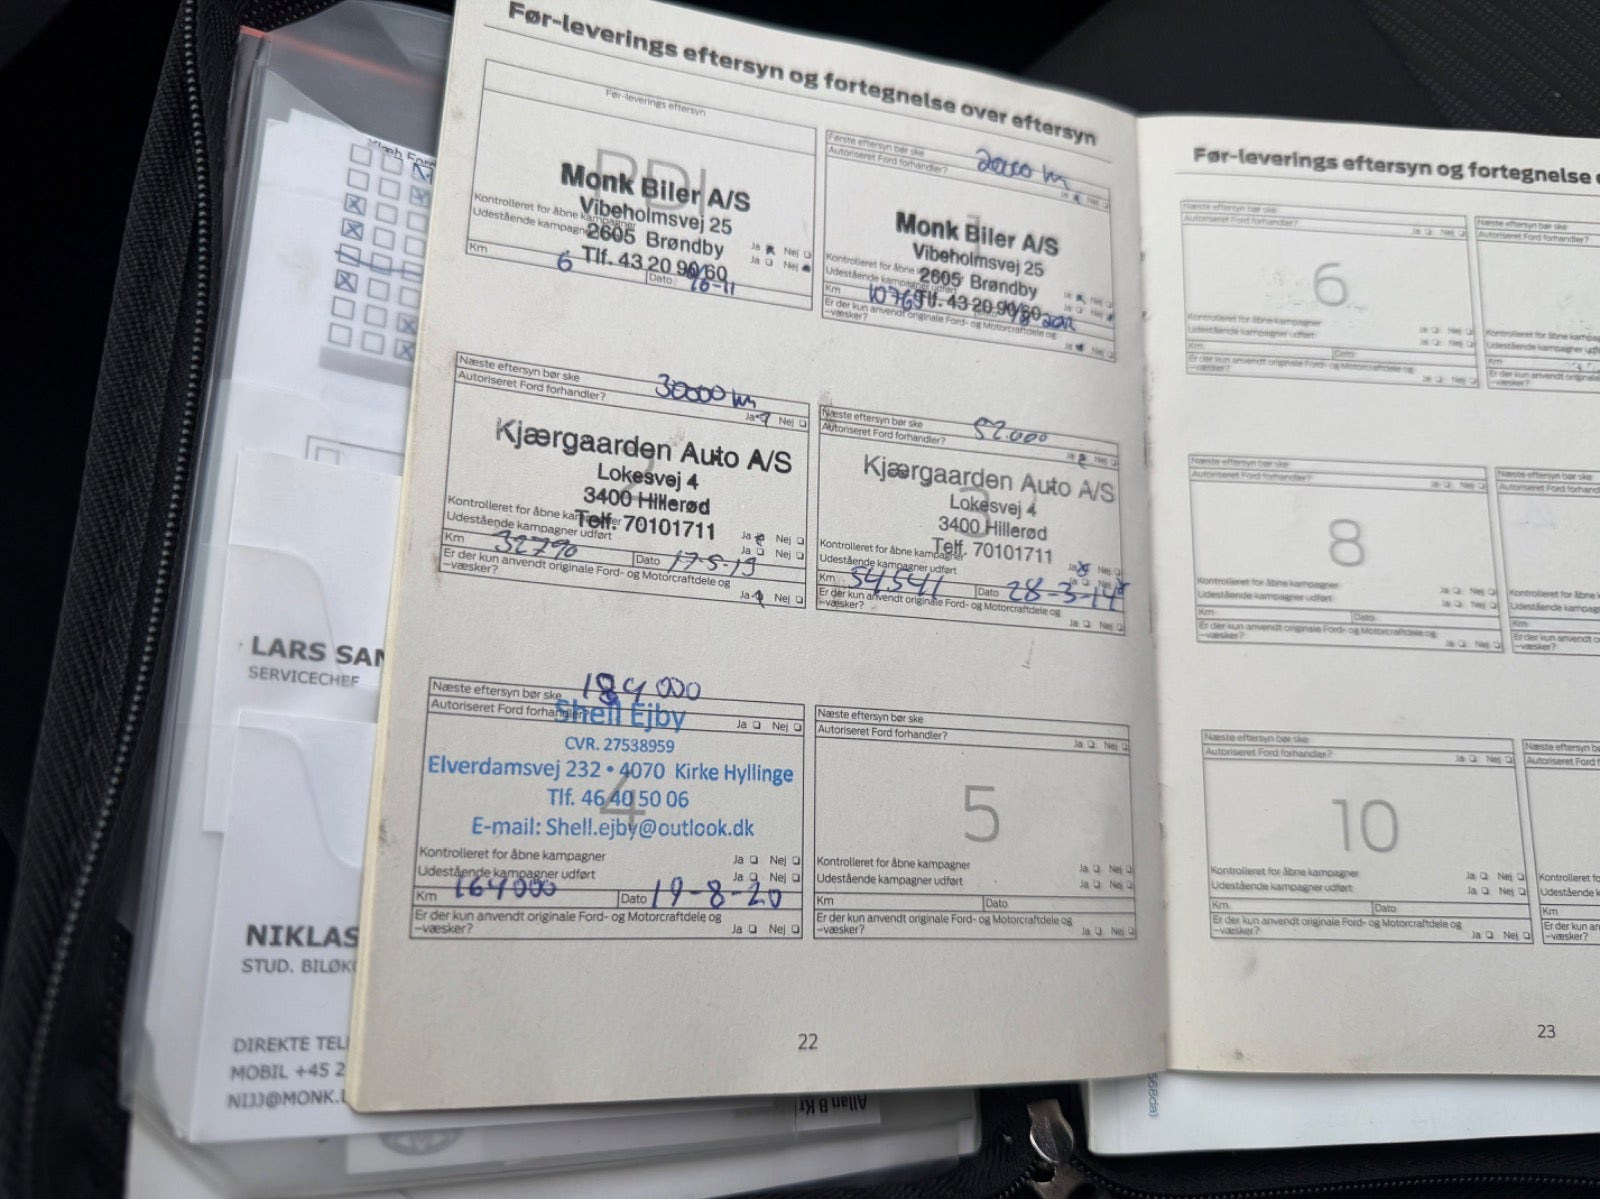 Før-leverings eftersyn og fortegnelse over eftersyn
Før-leverings eftersyn
PDI
Monk Biler A/S
Vibeholmsvej 25
2605 Brøndby
Tlf. 43 20 90 60
Kontrolleret for åbne kampagner
Ja Nej
Udestående kampagner
Ja Nej
Km 6 Dato 16-11
Første eftersyn bør ske 20000 km
Autoriseret Ford forhandler?
Ja Nej
Monk Biler A/S
Vibeholmsvej 25
2605 Brøndby
Tlf. 43 20 90 60
Kontrolleret for åbne
Ja Nej
Udestående kampagner udført
Ja Nej
Km 10769
Er der kun anvendt originale Ford- og Motorcraftdele og
-væsker?
Ja Nej
Næste eftersyn bør ske 30000 km
Autoriseret Ford forhandler?
Ja Nej
2
Kjærgaarden Auto A/S
Lokesvej 4
3400 Hillerød
Telf. 70101711
Kontrolleret for åbne kampagner
Ja Nej
Udestående kampagner udført
Ja Nej
Km 32790 Dato 17-5-13
Er der kun anvendt originale Ford- og Motorcraftdele og
-væsker?
Ja Nej
Næste eftersyn bør ske 52.000
Autoriseret Ford forhandler?
Ja Nej
3
Kjærgaarden Auto A/S
Lokesvej 4
3400 Hillerød
Telf. 70101711
Kontrolleret for åbne kampagner
Ja Nej
Udestående kampagner udført
Ja Nej
Km 54541 Dato 28-3-14
Er der kun anvendt originale Ford- og Motorcraftdele og
-væsker?
Ja Nej
Næste eftersyn bør ske 184000
Autoriseret Ford forhandler?
Ja Nej
4
Shell Ejby
CVR. 27538959
Elverdamsvej 232 • 4070 Kirke Hyllinge
Tlf. 46 40 50 06
E-mail: Shell.ejby@outlook.dk
Kontrolleret for åbne kampagner
Ja Nej
Udestående kampagner udført
Ja Nej
Km 164000 Dato 19-8-20
Er der kun anvendt originale Ford- og Motorcraftdele og
-væsker?
Ja Nej
Næste eftersyn bør ske
Autoriseret Ford forhandler?
Ja Nej
5
Kontrolleret for åbne kampagner
Ja Nej
Udestående kampagner udført
Ja Nej
Km Dato
Er der kun anvendt originale Ford- og Motorcraftdele og
-væsker?
Ja Nej
22
Før-leverings eftersyn og fortegnelse
Næste eftersyn bør ske
Autoriseret Ford forhandler?
Ja Nej
6
Kontrolleret for åbne kampagner
Ja Nej
Udestående kampagner udført
Ja Nej
Km Dato
Er der kun anvendt originale Ford- og Motorcraftdele og
-væsker?
Ja Nej
Næste eftersyn bør ske
Autoriseret Ford forhandler?
Kontrolleret for åbne
Udestående kampagner
Km
Er der kun anvendt originale
-væsker?
Næste eftersyn bør ske
Autoriseret Ford forhandler?
Ja Nej
8
Kontrolleret for åbne kampagner
Ja Nej
Udestående kampagner udført
Ja Nej
Km Dato
Er der kun anvendt originale Ford- og Motorcraftdele og
-væsker?
Ja Nej
Næste eftersyn bør ske
Autoriseret Ford
Kontrolleret for åbne
Udestående
Km
Er der kun anvendt
-væsker?
Næste eftersyn bør ske
Autoriseret Ford forhandler?
Ja Nej
10
Kontrolleret for åbne kampagner
Ja Nej
Udestående kampagner udført
Ja Nej
Km Dato
Er der kun anvendt originale Ford- og Motorcraftdele og
-væsker?
Ja Nej
Næste eftersyn bør
Autoriseret Ford
Kontrolleret for
Udestående
Km
Er der kun
-væsker?
23
LARS SAN
SERVICECHEF
NIKLAS
STUD. BILØK
DIREKTE TEL
MOBIL +45 2
NIJJ@MONK.
Allan B Kr
568da)